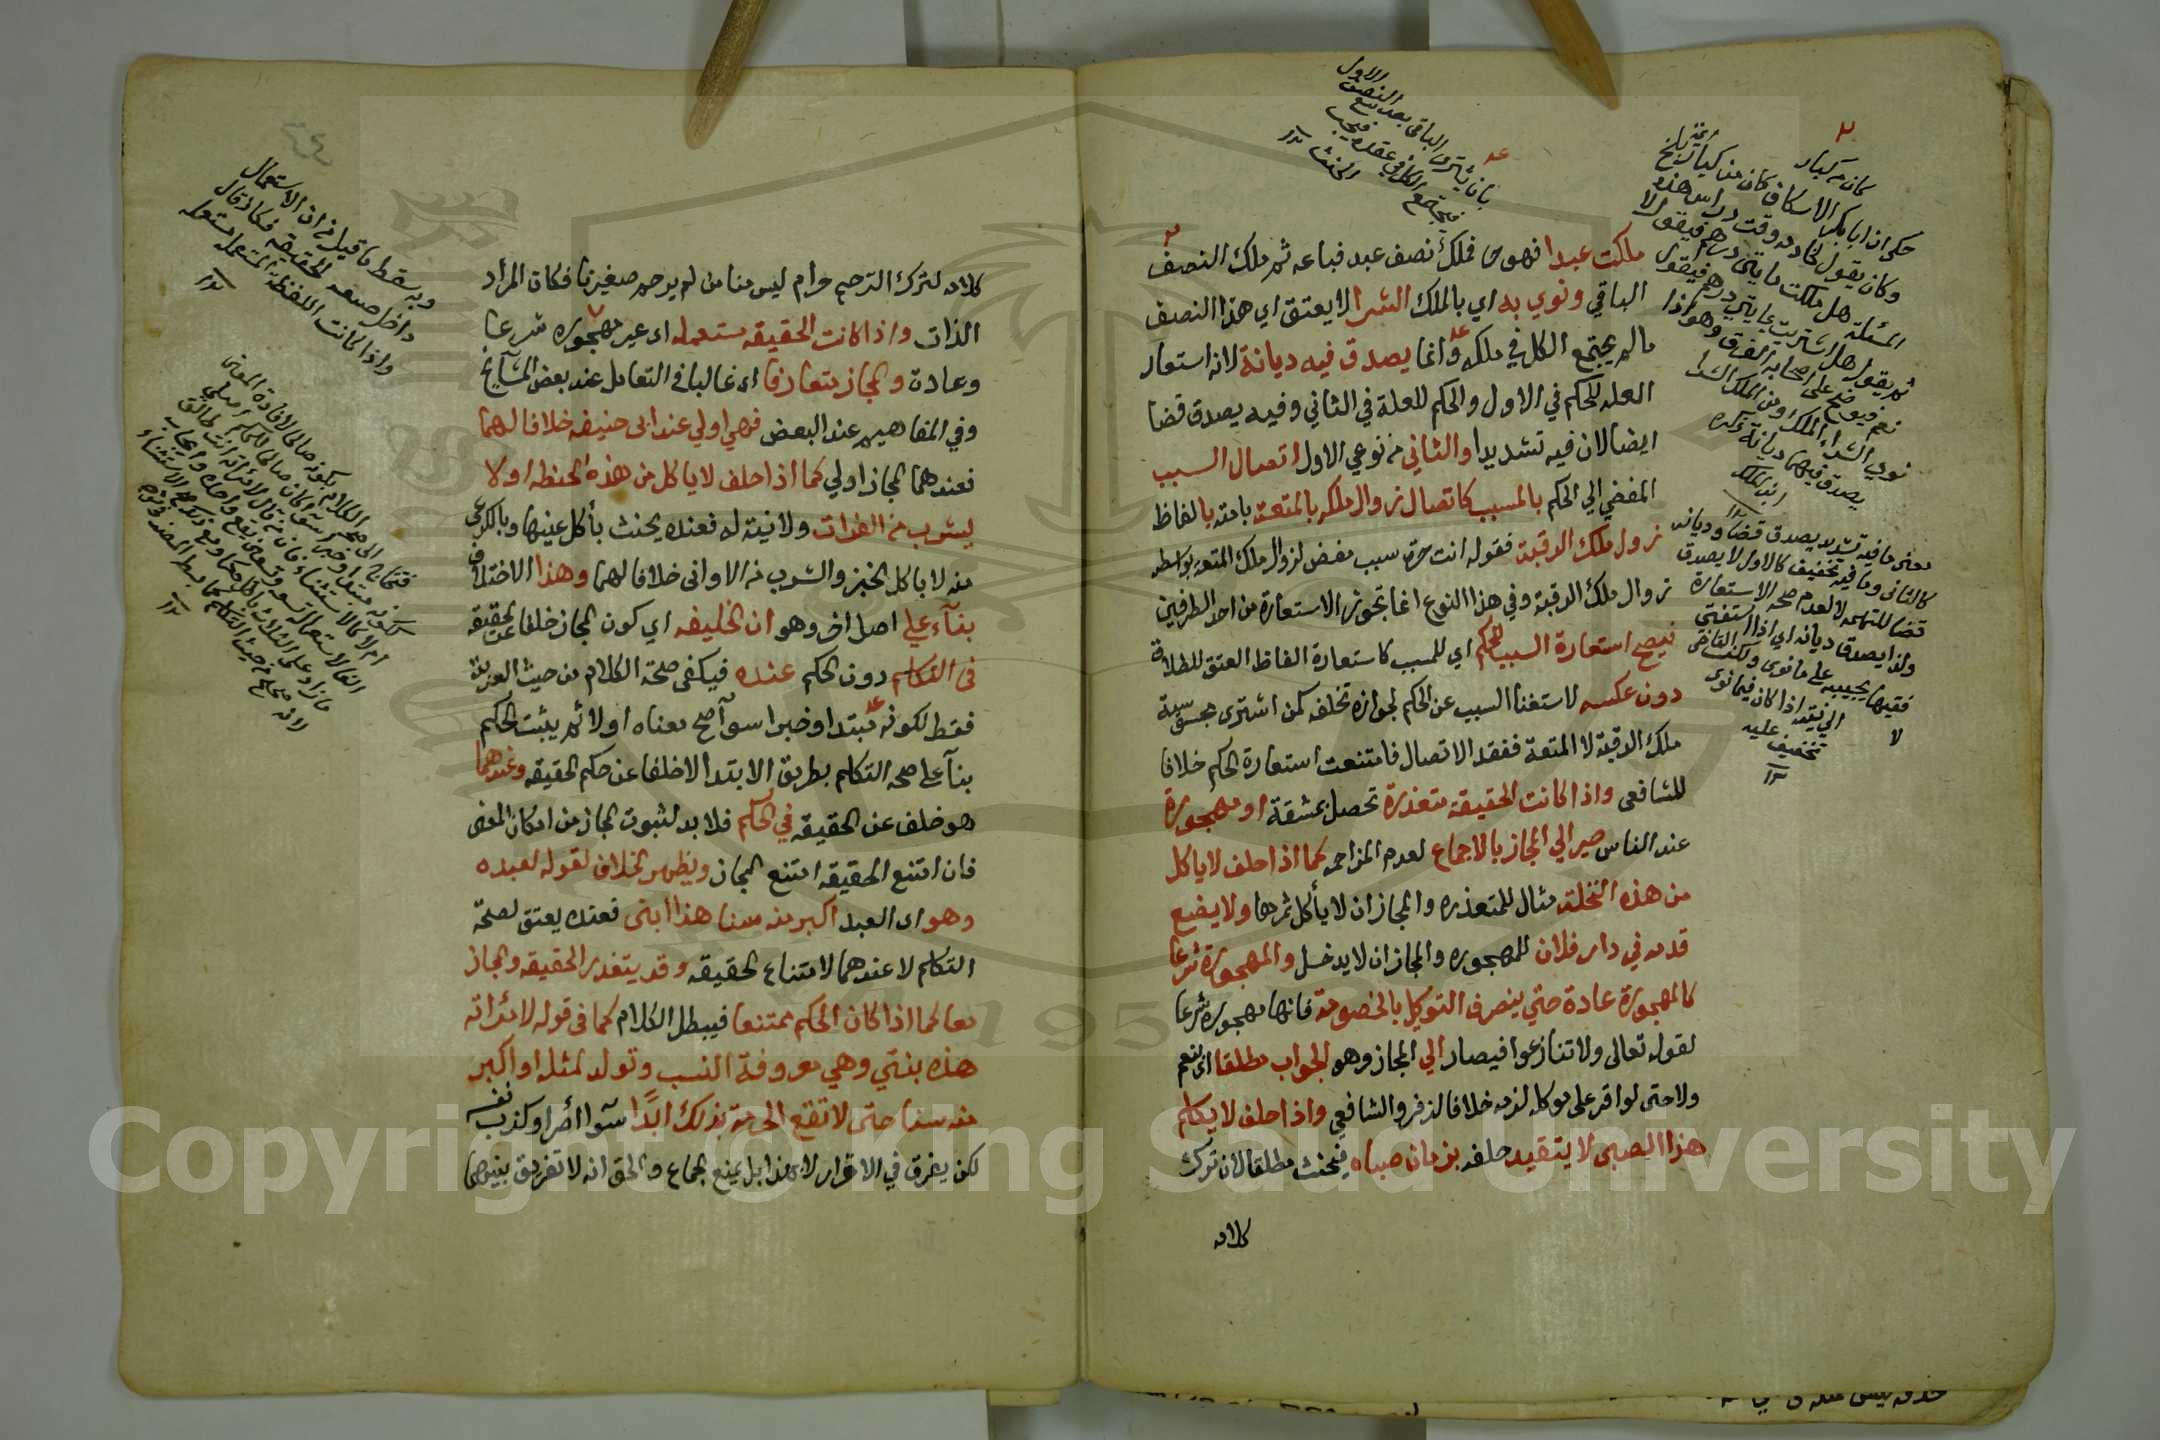 ملكت عبدا فهو حر فملك نصف عبد فباعه ثم ملك النصف
الباقي ونوي به اي بالملك الشرا لا يعتق اي هذا النصف
مالم يجتمع الكل في ملكه وانما يصدق فيه ديانة لانه استعار
العله للحكم في الاول والحكم للعلة في الثاني وفيه يصدق قضا
ايضا لان فيه تشديدا والثاني من نوعي الاول اتصال السبب
المفضي الي الحكم بالمسبب كاتصال زوال ملكه بالمتعة بامته بالفاظ
زول ملك الرقبة فقوله انت حرة سبب مفض لزوال ملك المتعه بواسطه
زوال ملك الرقبة وفي هذا النوع انما تجوز الاستعارة من احد الطرفين
فيصح استعارة السبب للحكم اي للمسبب كاستعارة الفاظ العتق للطلاق
دون عكسه لاستغنا السبب عن الحكم لجوازه تخلفه كمن اشترى مجوسية
ملك الرقبة لا المتعة ففقد الاتصال فامتنعت استعارة الحكم خلافا
للشافعى واذا كانت الحقيقة متعذرة تحصل بمشقة او مهجورة
عند الناس صير الي المجاز بالاجماع لعدم المزاحم كما اذا حلف لا ياكل
من هذه النخلة مثال للمتعذره والمجاز ان لا يأكل ثمرها ولا يضع
قدمه في دار فلان للمهجوره والمجاز ان لا يدخل والمهجورة شرعا
كالمهجورة عادة حتي ينصرف التوكيل بالخصومة فانها مهجوره شرعا
لقوله تعالى ولا تنازعوا فيصار الي المجاز وهو الجواب مطلقا اى بنعم
ولا حتى لو اقر على موكله لزمه خلافا لزفر والشافعي واذا حلف لا يكلم
هذا الصبى لا يتقيد حلفه بزمان صباه فيحنث مطلقا لان ترك
كلامه
بان يشترى الباقى بعد بيع النصف الاول
فيجتمع الكل في عقده فيجب
الحنث
حكى ان ابا بكر الاسكاف كان من كبار ائمة بلخ
وكان يقول لخادمه وقت درس هذه
المسئلة هل ملكت مايتى درهم فيقول لا
ثم يقول هل اشتريت بمايتى درهم فيقول
نعم فيوضح على اصحابه الفرق وهو اذا
نوى الشراء بالملك او من الملك الشرا
يصدق فيهما ديانة ذكره
ابن الملك
يعنى ما فيه تشديد يصدق قضا وديانه
كالثانى وما فيه تخفيف كالاول لا يصدق
قضا للتهمه لا لعدم صحه الاستعارة
ولذا يصدق ديانه اي اذا استفتى
فقيها يجيبه على ما نوى ولكن القاضى
لا
اذا كان فيما نوى
تخفيف عليه
كلامه لترك الترحم حرام ليس منا من لم يرحم صغيرنا فكان المراد
الذات واذا كانت الحقيقه مستعمله اى غير مهجوره شرعا
وعادة والمجاز متعارفا اى غالبا في التعامل عند بعض المشايخ
وفي التفاهيم عند البعض فهي اولي عند ابى حنيفه خلافا لهما
فعندهما المجاز اولي كما اذا حلف لا ياكل من هذه الحنطه او لا
يشرب من الفرات ولا نية له فعنده يحنث بأكل عينها وبالكرع
منه لا باكل الخبز والشرب من الاوانى خلافا لهما وهذا الاختلاف
بنآء على اصل اخر وهو ان الخليفه اي كون المجاز خلفا عن الحقيقة
فى التكلم دون الحكم عنده فيكفى صحة الكلام من حيث العربية
فقط لكونه مبتدا وخبرا سوآ صح معناه او لا ثم يثبت الحكم
بنآ على صحه التكلم بطريق الابتدا لا خلفا عن حكم الحقيقه وعندهما
هو خلف عن الحقيقه في الحكم فلا بد لثبوت المجاز من امكان المعنى
فان امتنع الحقيقه امتنع المجاز ويظهر الخلاف لقوله لعبده
وهو اى العبد اكبر منه سنا هذا ابنى فعنده يعتق لصحة
التكلم لا عندهما لامتناع الحقيقه وقد يتعذر الحقيقه والمجاز
معا كما اذا كان الحكم ممتنعا فيبطل الكلام كما فى قوله لامرأته
هذه بنتي وهي معروفة النسب وتولد لمثله او اكبر
منه سنا حتى لا تقع الحرمة بذلك ابدًا سوآ اصر او كذب نفسه
لكن يفرق في الاقرار لا لهذا بل لمنع الجماع والحق انه لا تفريق بينهما
وبه سقط ما قيل من ان الاستعمال
داخل حقيقه فكان قال
واذا كانت اللفظه المستعمل مستعمله